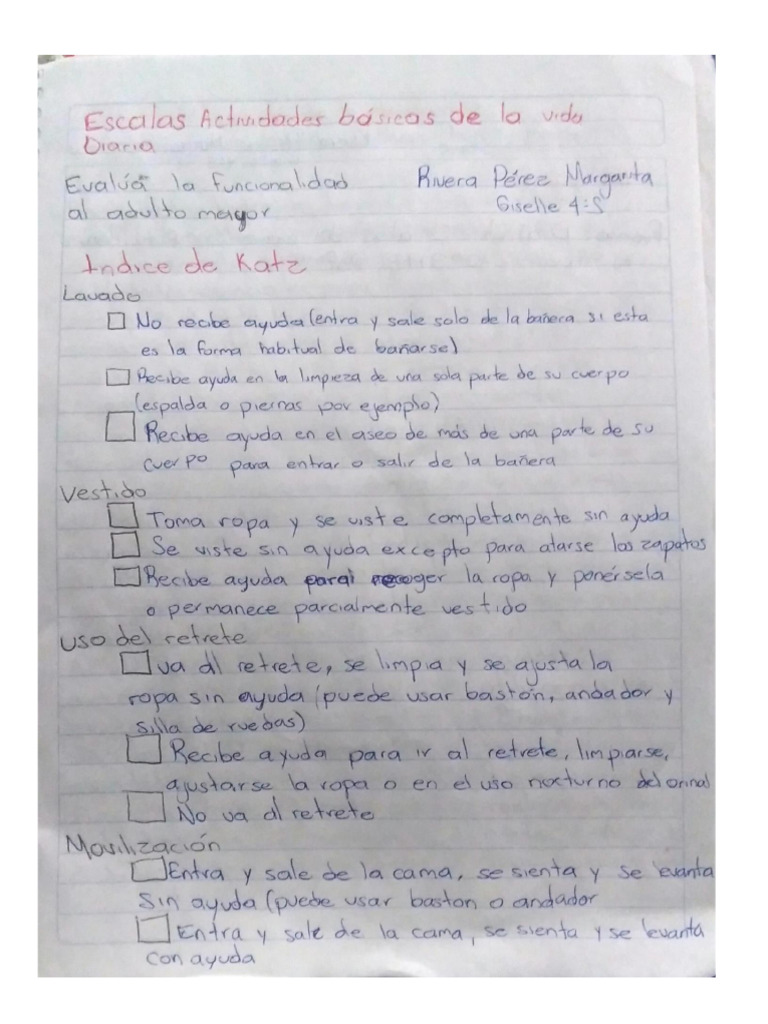 Escalas Actividades básicas de la vida
Diaria
Evalúa la funcionalidad
al adulto mayor
Rivera Pérez Margarita
Giselle 4:S
Indice de Katz
Lavado
No recibe ayuda (entra y sale solo de la bañera si esta
es la forma habitual de bañarse)
Recibe ayuda en la limpieza de una sola parte de su cuerpo
(espalda o piernas por ejemplo)
Recibe ayuda en el aseo de más de una parte de su
cuerpo para entrar o salir de la bañera
Vestido
Toma ropa y se viste completamente sin ayuda
Se viste sin ayuda excepto para atarse los zapatos
Recibe ayuda para recoger la ropa y ponérsela
o permanece parcialmente vestido
uso del retrete
va al retrete, se limpia y se ajusta la
ropa sin ayuda (puede usar bastón, andador y
silla de ruedas)
Recibe ayuda para ir al retrete, limpiarse,
ajustarse la ropa o en el uso nocturno del orinal
No va al retrete
Movilización
Entra y sale de la cama, se sienta y se levanta
sin ayuda (puede usar baston o andador
Entra y sale de la cama, se sienta y se levanta
con ayuda